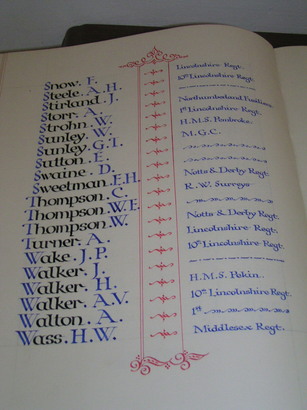 Snow. F. Lincolnshire Regt.
Steele. A.H. 10th Lincolnshire Regt.
Stirland. J.
Storr. A. Northumberland Fusiliers
Strohn. W. 1st Lincolnshire Regt.
Sunley. W. H.M.S. Pembroke.
Sunley. G.T. M.G.C.
Sutton. E.
Swaine. D.
Sweetman. E.H. Notts & Derby Regt.
Thompson. C. R.W. Surreys
Thompson. W.E.
Thompson. W. Notts & Derby Regt.
Turner. A. Lincolnshire Regt.
Wake. J.P. 10th Lincolnshire Regt.
Walker. J.
Walker. H. H.M.S. Pekin.
Walker. A.V. 10th Lincolnshire Regt.
Walton. A. 1st
Wass. H.W. Middlesex Regt.